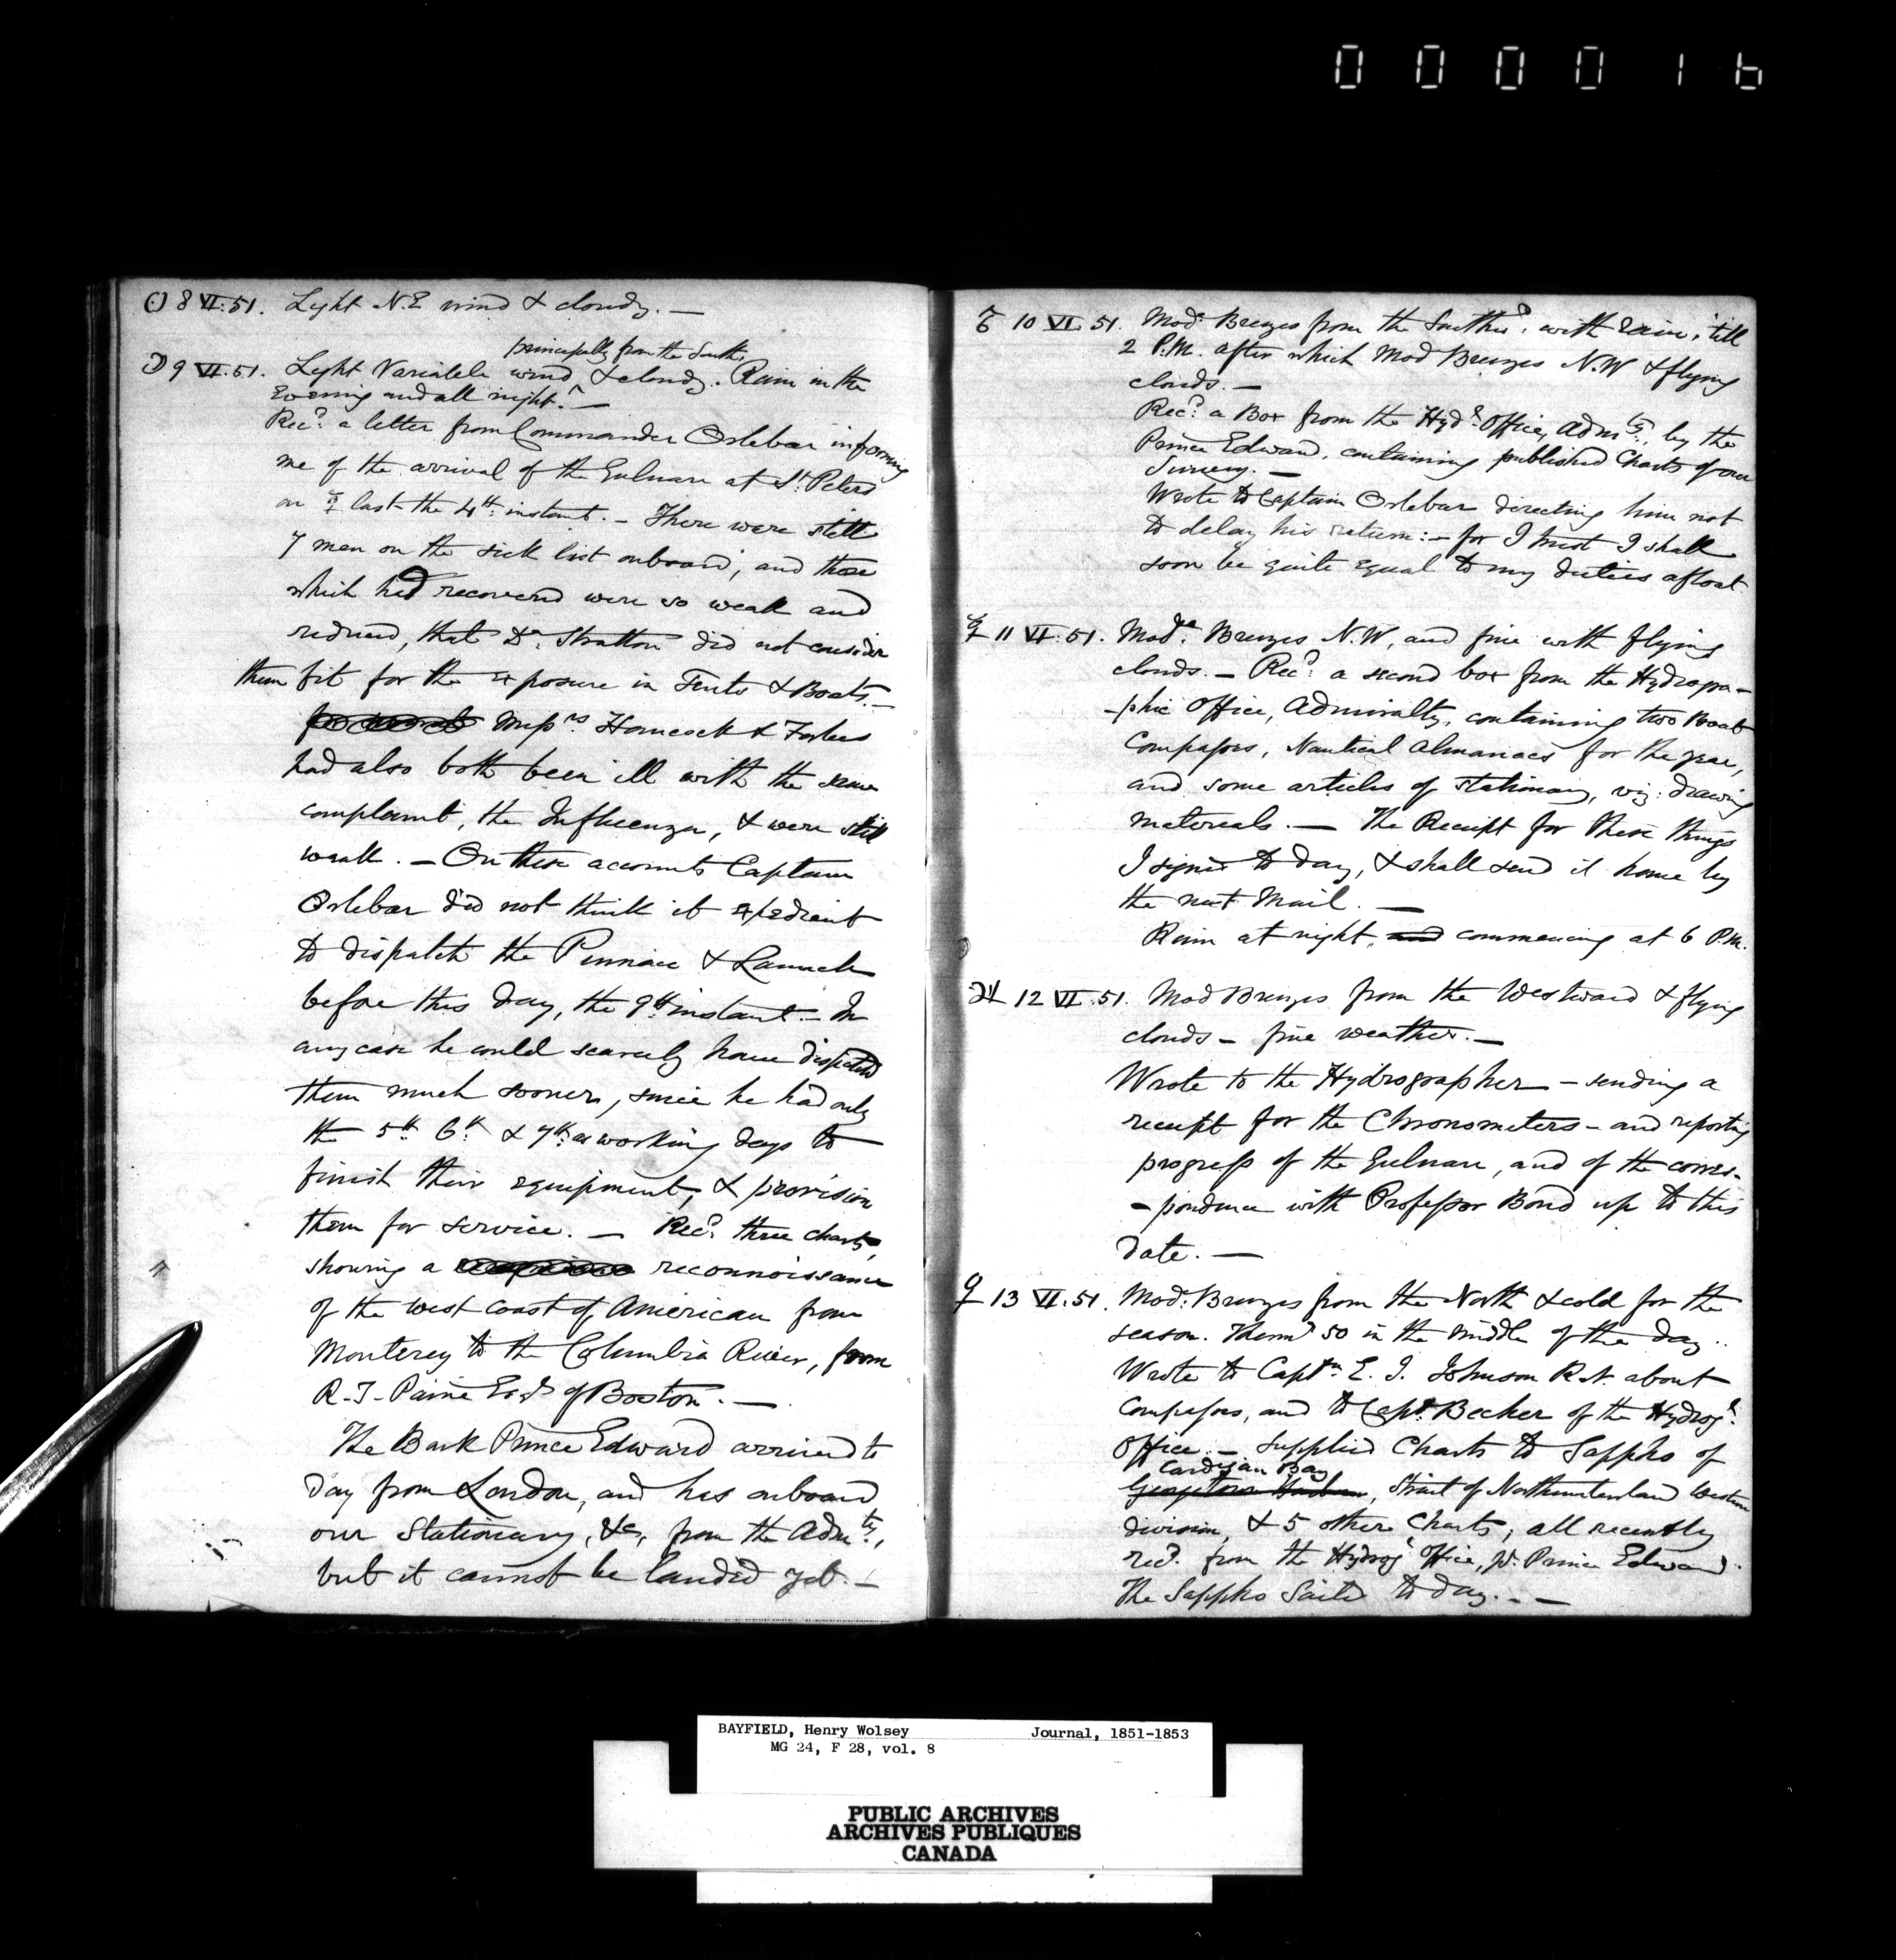 000016
☉ 8 VI. 51. Light N.E wind & cloudy. —
principally from the South.
☽ 9 VI. 51. Light Variable wind ^ & cloudy. Rain in the
Evening and all night. —
Recd. a letter from Commander Orlebar informing
me of the arrival of the Gulnare at St. Peters
on ☿ last the 4th. instant. — There were still
7 men on the sick list onboard, and those
which had recovered were so weak and
reduced, that Dr. Stratton did not consider
them fit for the exposure in Tents & Boats. —
Messrs Hancock & Forbes
had also both been ill with the same
complaint, the Influenza, & were still
weak. — On these accounts Captain
Orlebar did not think it expedient
to dispatch the Pinnace & Launch
before this day, the 9th instant. — In
any case he could scarcely have dispatched
them much sooner, since he had only
the 5th. 6th. & 7th. as working days to
finish their equipment, & provision
them for service. — Recd. three charts,
showing a reconnoissance
of the west coast of American from
Monterey to the Columbia River, from
R. T. Paine Esqr. of Boston. —
The Bark Prince Edward arrived to
day from London, and has onboard
our Stationary, &c, from the Admty.,
but it cannot be landed yet. —
♂ 10 VI. 51. Modr. Breezes from the Southwd. with Rain, 'till
2 P.M. after which Mod Breezes N.W & flying
clouds. —
Recd. a Box from the Hydr. Office, Admty., by the
Prince Edward, containing published Charts of our
Survey. —
Wrote to Captain Orlebar directing him not
to delay his return: — for I trust I shall
soon be quite equal to my duties afloat
☿ 11 VI. 51. Mode. Breezes N.W, and fine with flying
clouds. — Recd. a second box from the Hydrogra-
-phic Office, Admiralty, containing two Boat
Compasses, Nautical Almanacs for the year,
and some articles of stationary, viz: drawing
materials. — The Receipt for these things
I signed to day, & shall send it home by
the next Mail. —
Rain at night, and commencing at 6 P.M.
♃ 12 VI. 51. Mod Breezes from the Westward & flying
clouds — fine weather. —
Wrote to the Hydrographer — sending a
receipt for the Chronometers — and reporting
progress of the Gulnare, and of the corres-
-pondence with Professor Bond up to this
date. —
♀ 13 VI. 51. Mod: Breezes from the North & cold for the
season. Thermr 50 in the middle of the day.
Wrote to Captn. E. J. Johnson R.N. about
Compasses, and to Capt. Becher of the Hydrogr.
Office. — Supplied Charts to Sappho of
Cardigan Bay
Georgetown Harbour, Strait of Northumberland Western
division, & 5 other Charts, all recently
recd. from the Hydrogr Office, pr. Prince Edward.
The Sappho Sailed to day. —
BAYFIELD, Henry Wolsey Journal, 1851-1853
MG 24, F 28, vol. 8
PUBLIC ARCHIVES
ARCHIVES PUBLIQUES
CANADA